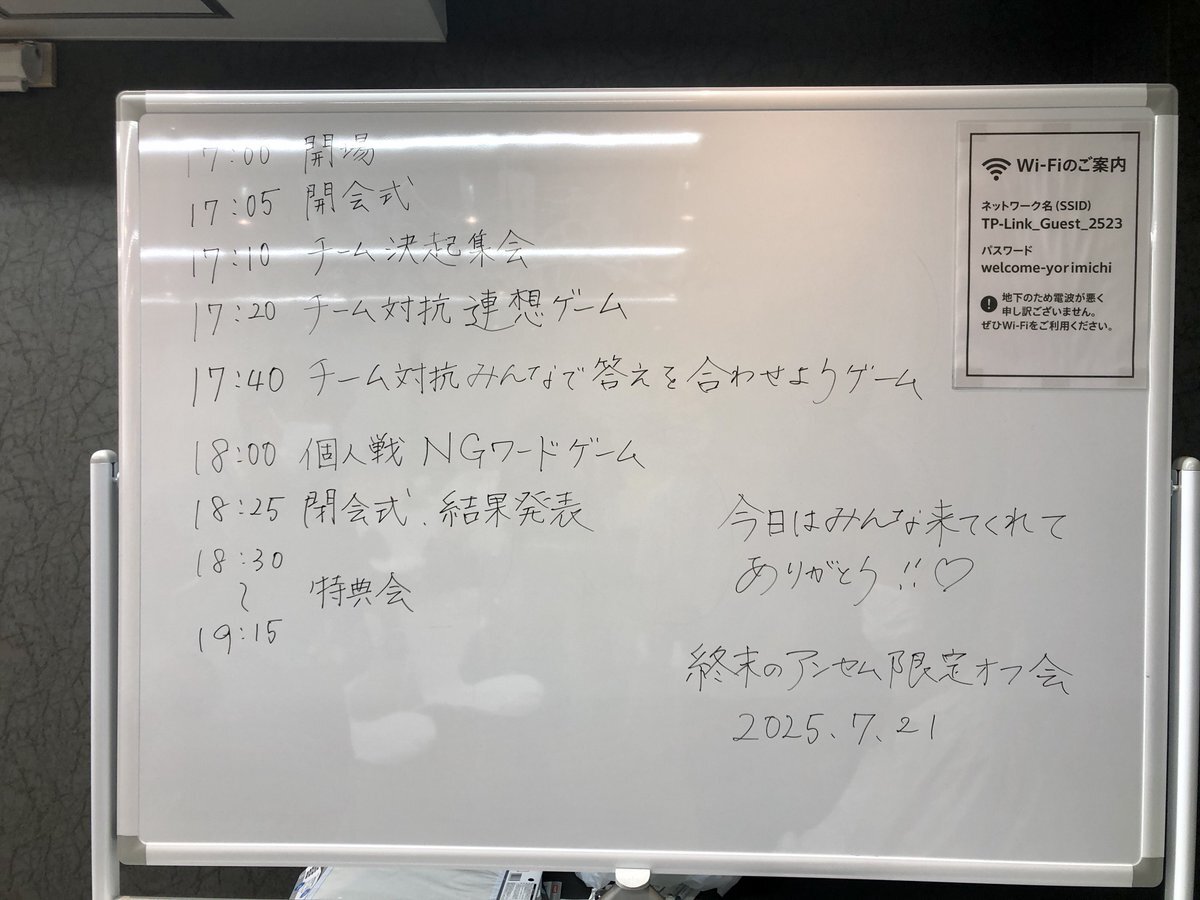 17:00 開場
17:05 開会式
17:10 チーム決起集会
17:20 チーム対抗 連想ゲーム
17:40 チーム対抗みんなで答えを合わせようゲーム
18:00 個人戦 NGワードゲーム
18:25 閉会式、結果発表
18:30
〜 特典会
19:15
今日はみんな来てくれて
ありがとう!!♡
終末のアンセム限定オフ会
2025.7.21
Wi-Fiのご案内
ネットワーク名 (SSID)
TP-Link_Guest_2523
パスワード
welcome-yorimichi
地下のため電波が悪く
申し訳ございません。
ぜひWi-Fiをご利用ください。